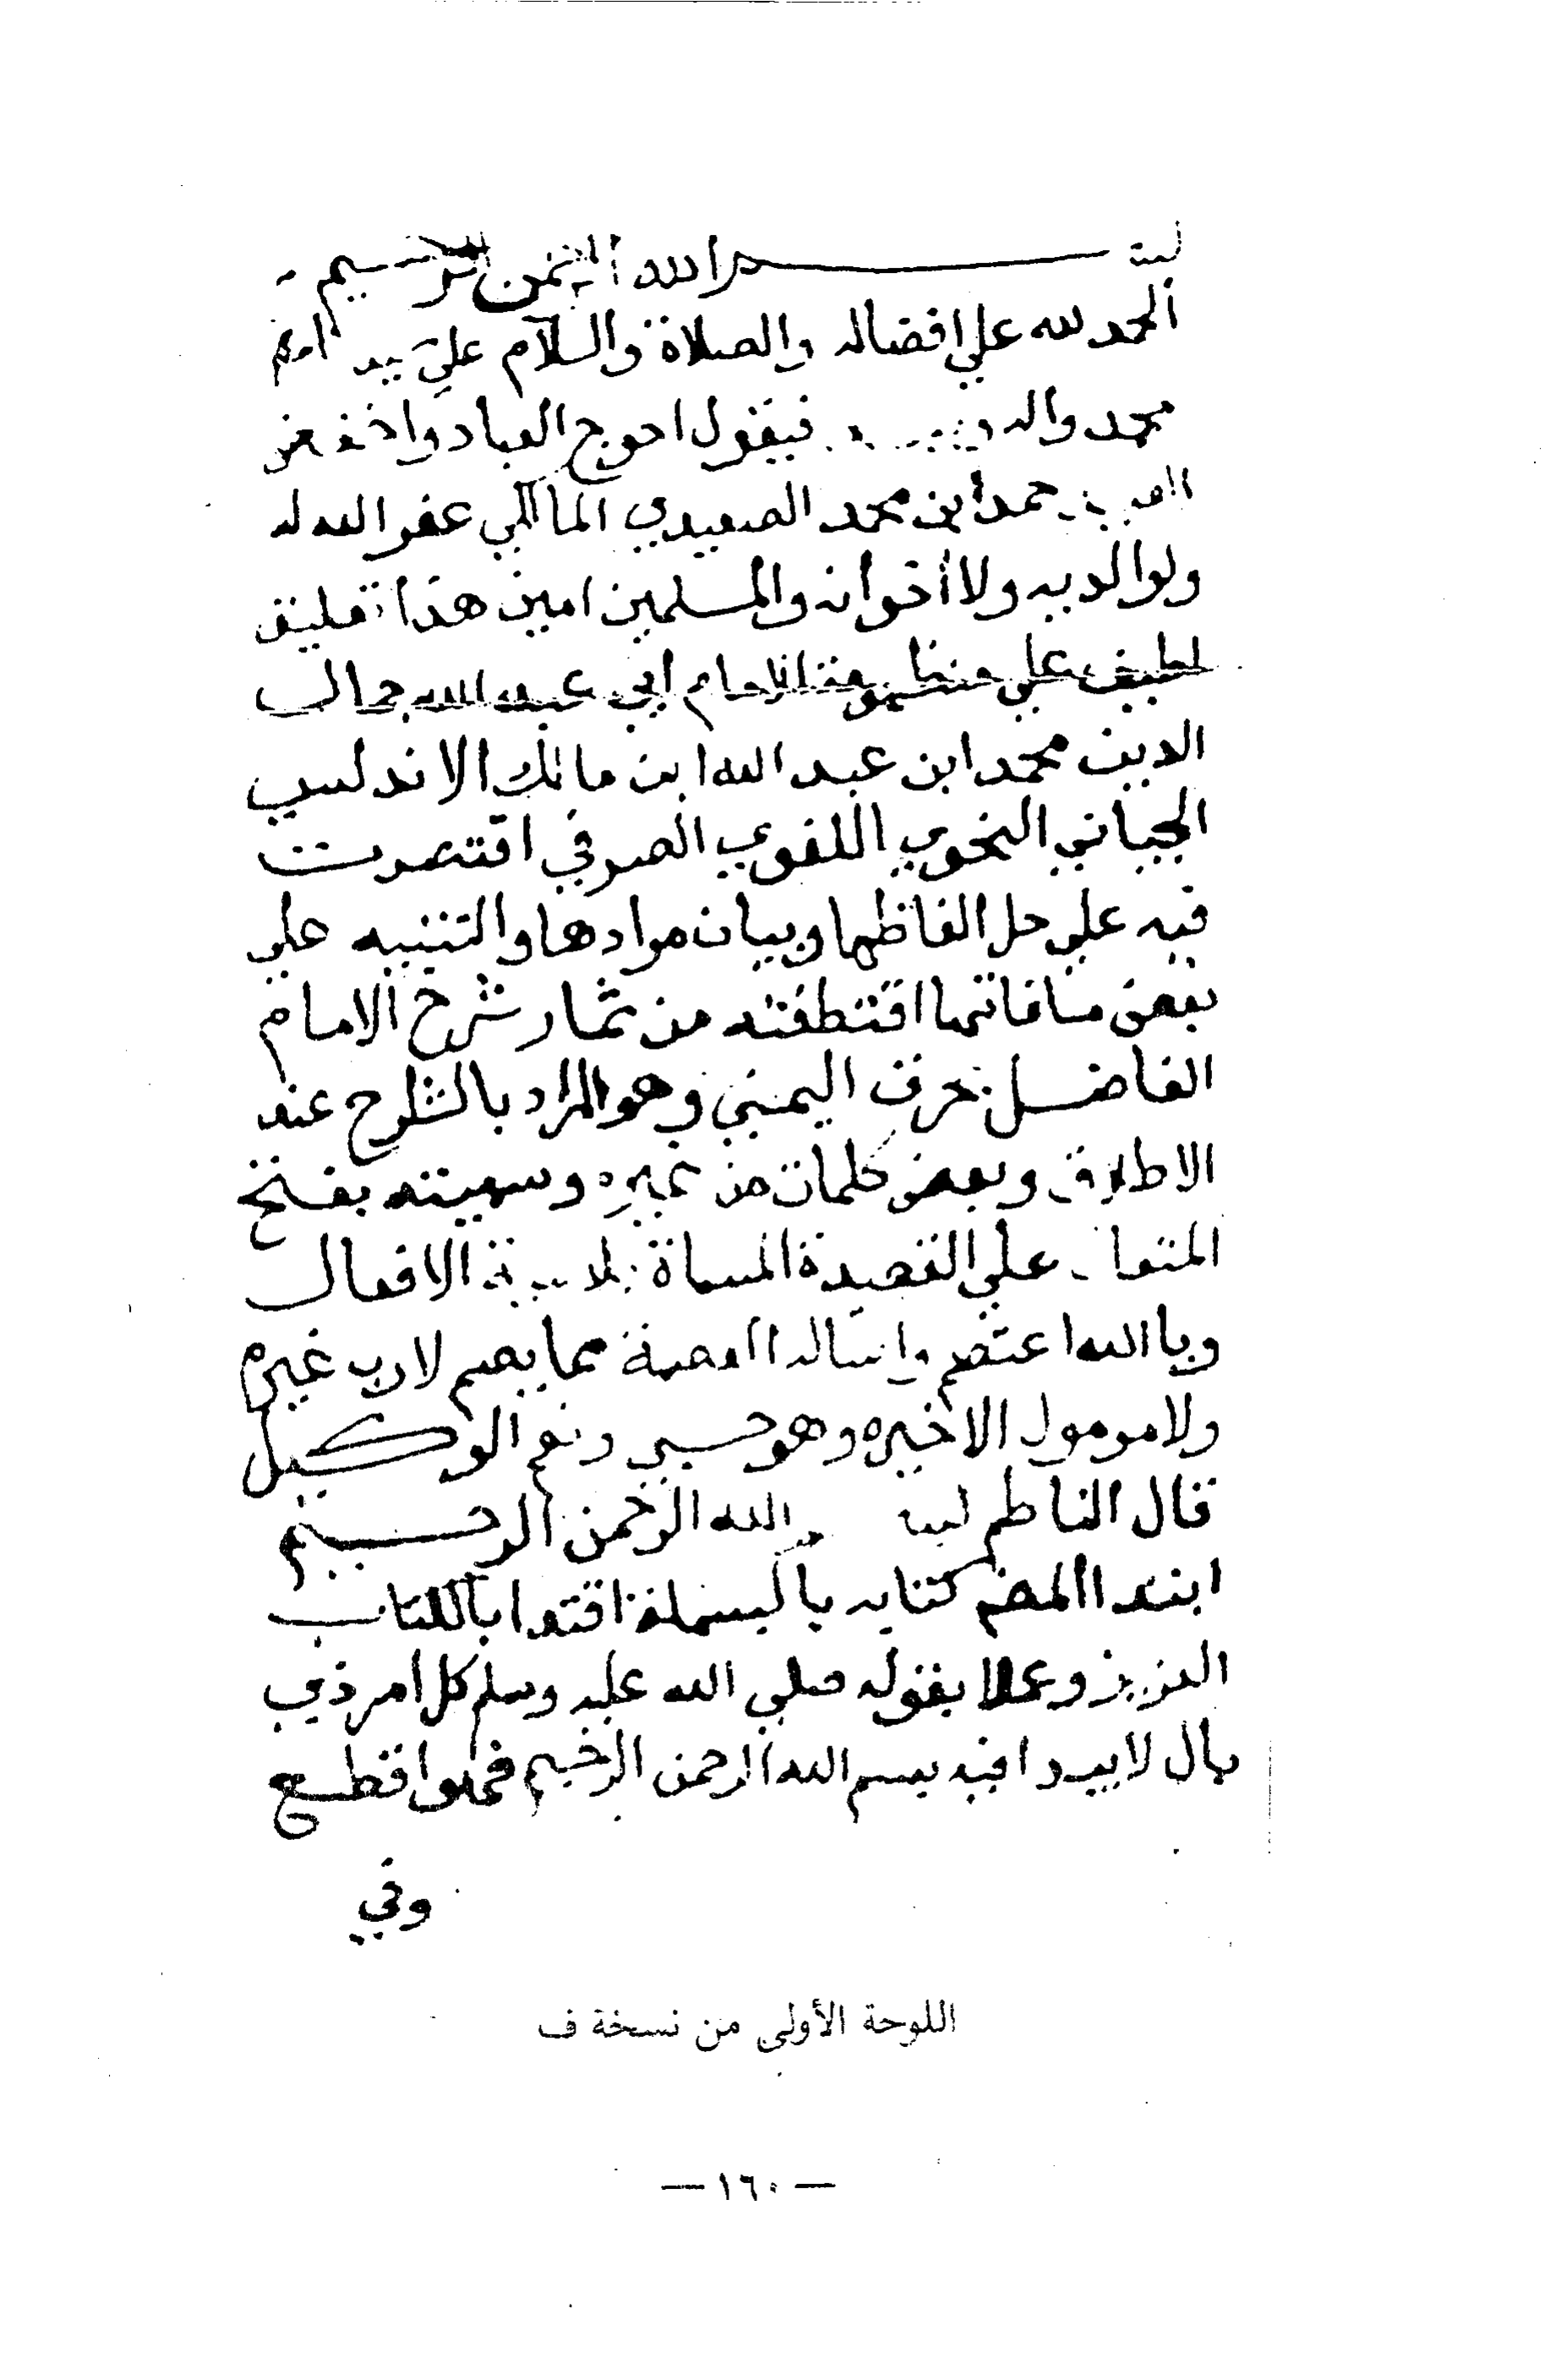 بسم الله الرحمن الرحيم
الحمد لله علي افضاله والصلاة والسلام علي
محمد واله فيقول احوج العباد واخفض
حمد ابن محمد الصعيدي المالكي عفر الله له
ولوالديه ولاأخوانه والمسلمين امين هذا تعليق
لطيف علي منظومة الامام ابي عبد الله جمال
الدين محمد ابن عبد الله ابن مالك الاندلسي
الجياني النحوي اللغوي الصرفي اقتصرت
فيه علي حل الفاظها وبيان مرادها والتنبيه علي
بعض منافاتهما اقتطفته من ثمار شرح الامام
الفاضل بحرق اليمني وهو المراد بالشارح عند
الاطلاق وبعض كلمات من غيره وسميته بفتح
المتعال علي القصيدة المسماة بلامية الافعال
وبا الله اعتصم واساله العصمة مما يصم لارب غيره
ولا مومول الاخيره وهو حسبي ونعم الوكيل
قال الناظم بسم الله الرحمن الرحيم
ابتدا المصم كتابه بالبسملة اقتدا بالكتاب
العزيز وعملا بقوله صلي الله عليه وسلم كل امر ذي
بال لا يبدا فيه ببسم الله الرحمن الرحيم فهوا قطع
وفي
اللوحة الأولى من نسخة ف
— ١٦٠ —